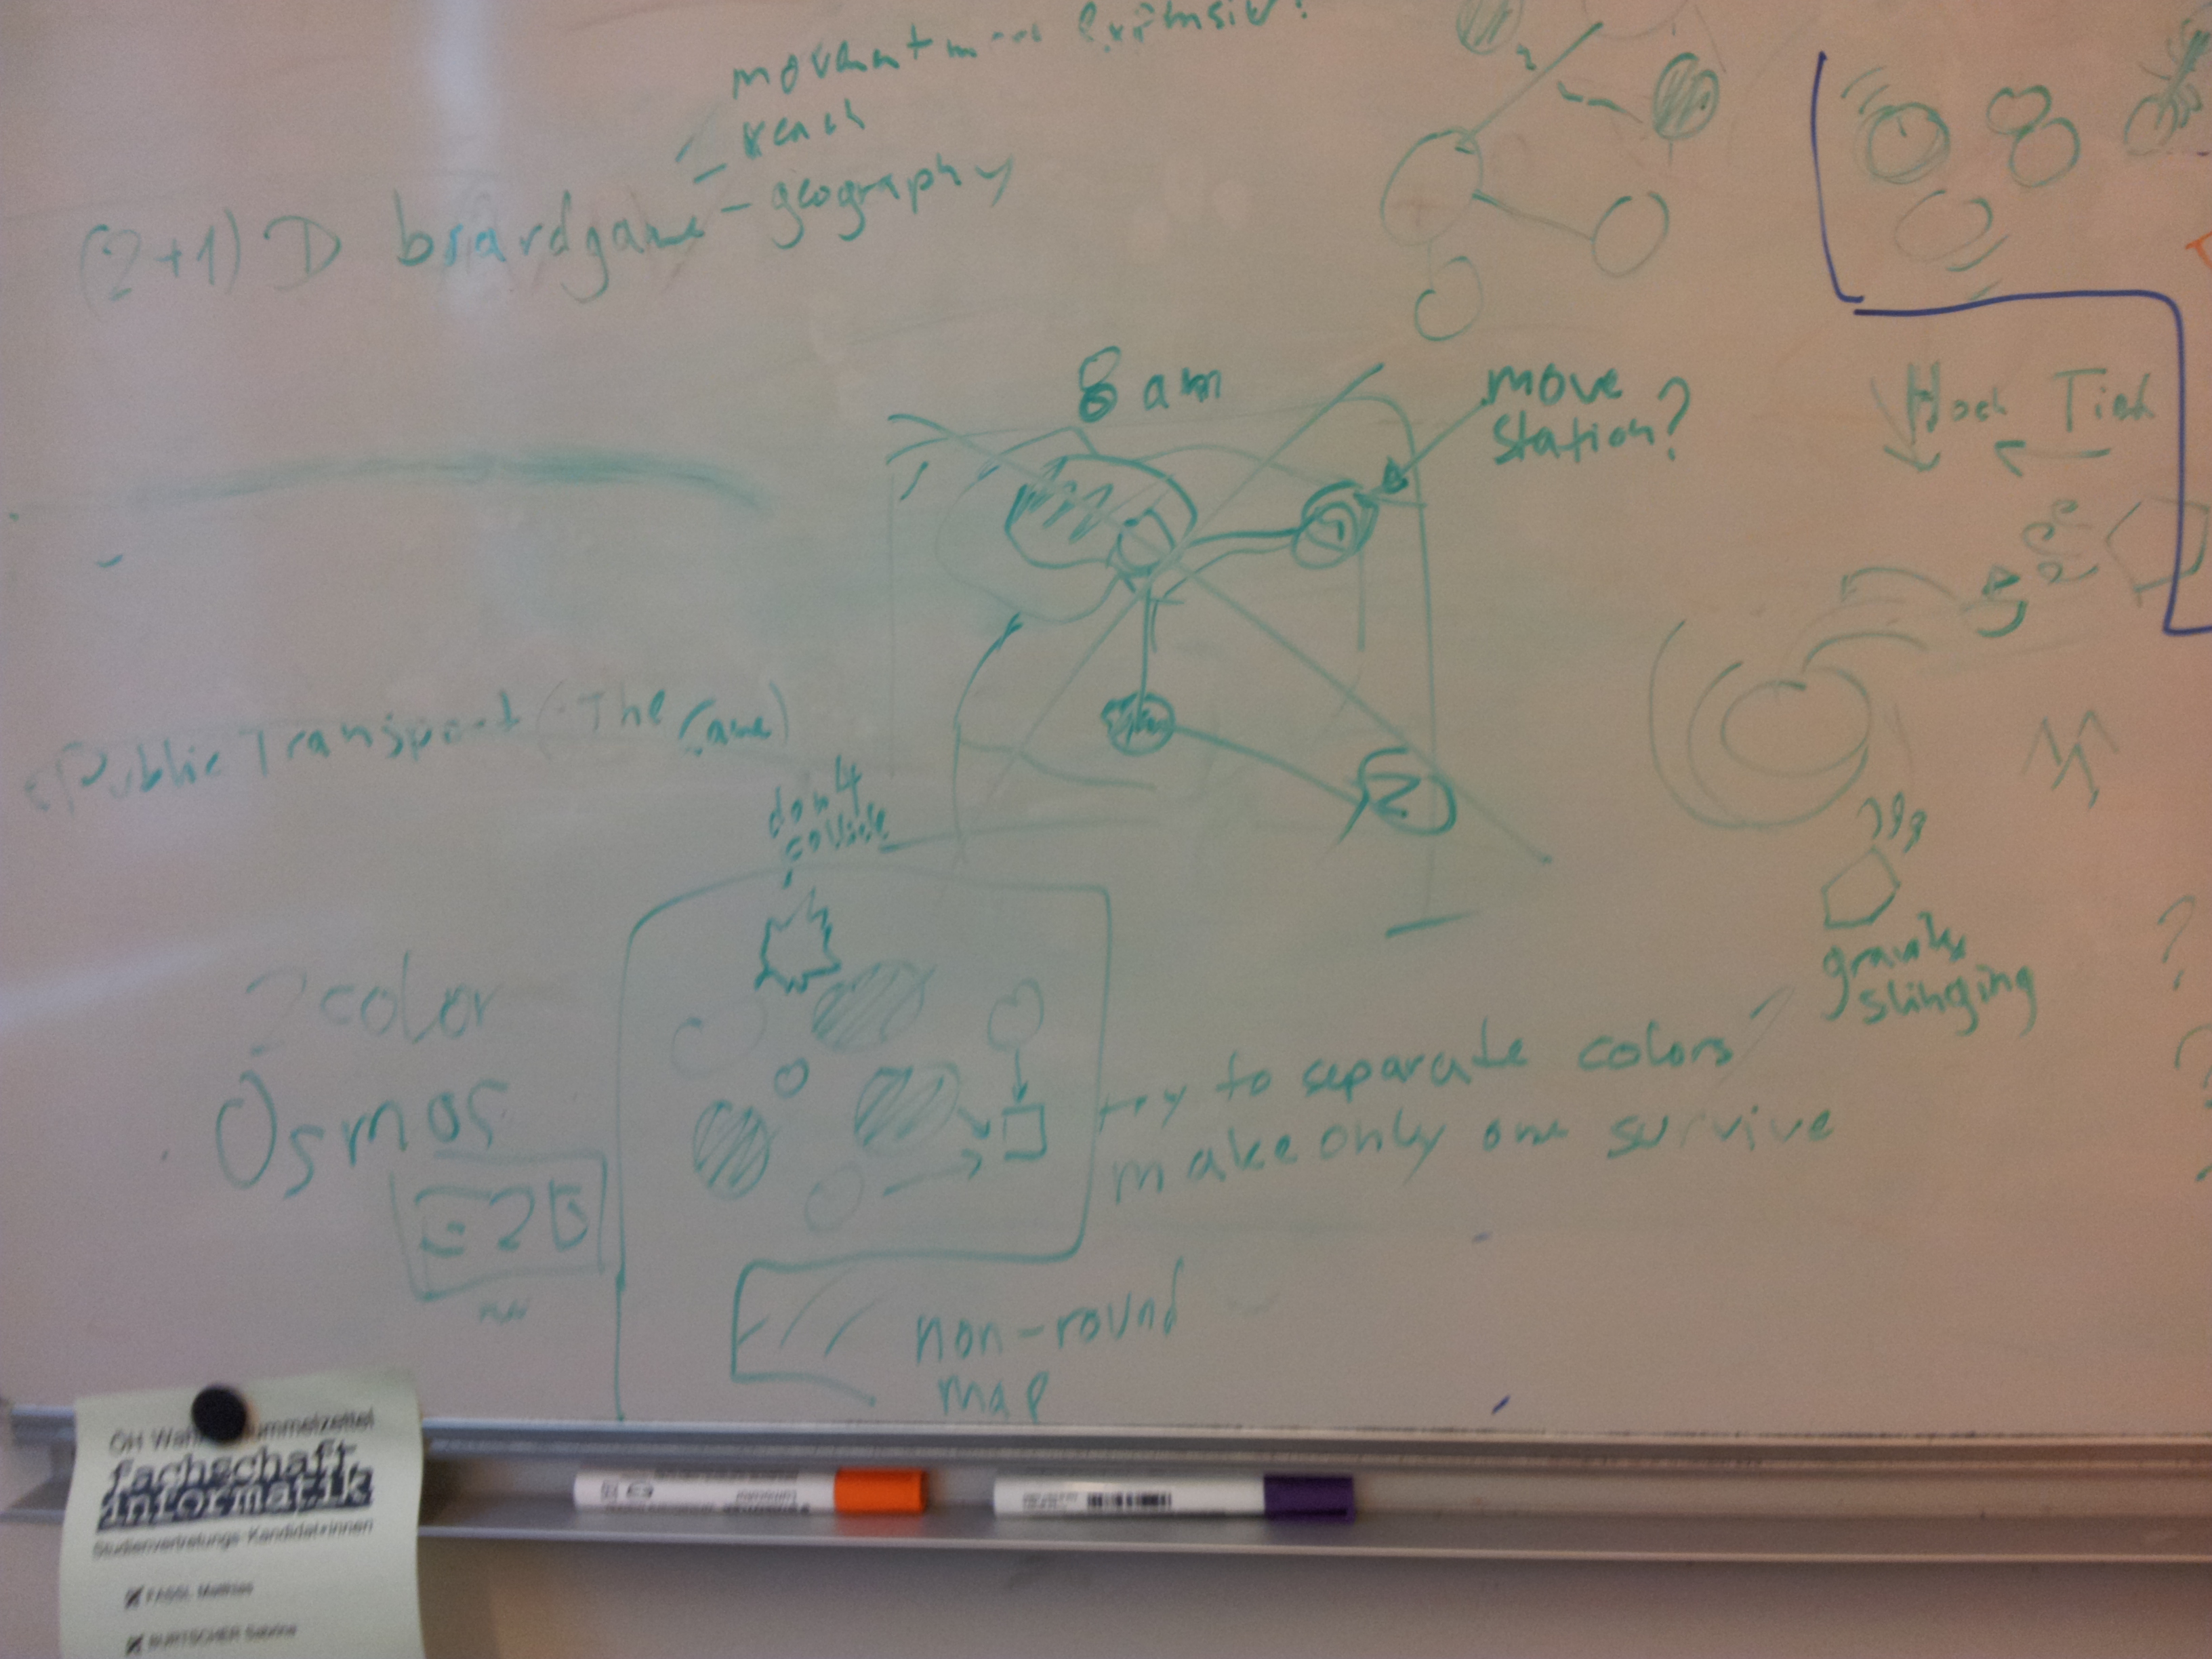 reach
(2+1) D boardgame - geography
8 am
move
station?
Public Transport (The Game)
don't
collide
gravity
slinging
2 color
Osmos
try to separate colors
make only one survive
non-round
map
2
fachschaft
informatik
Studienvertretungs-Kandidat*innen
FASSL Matthias
BURTSCHER Sabrina